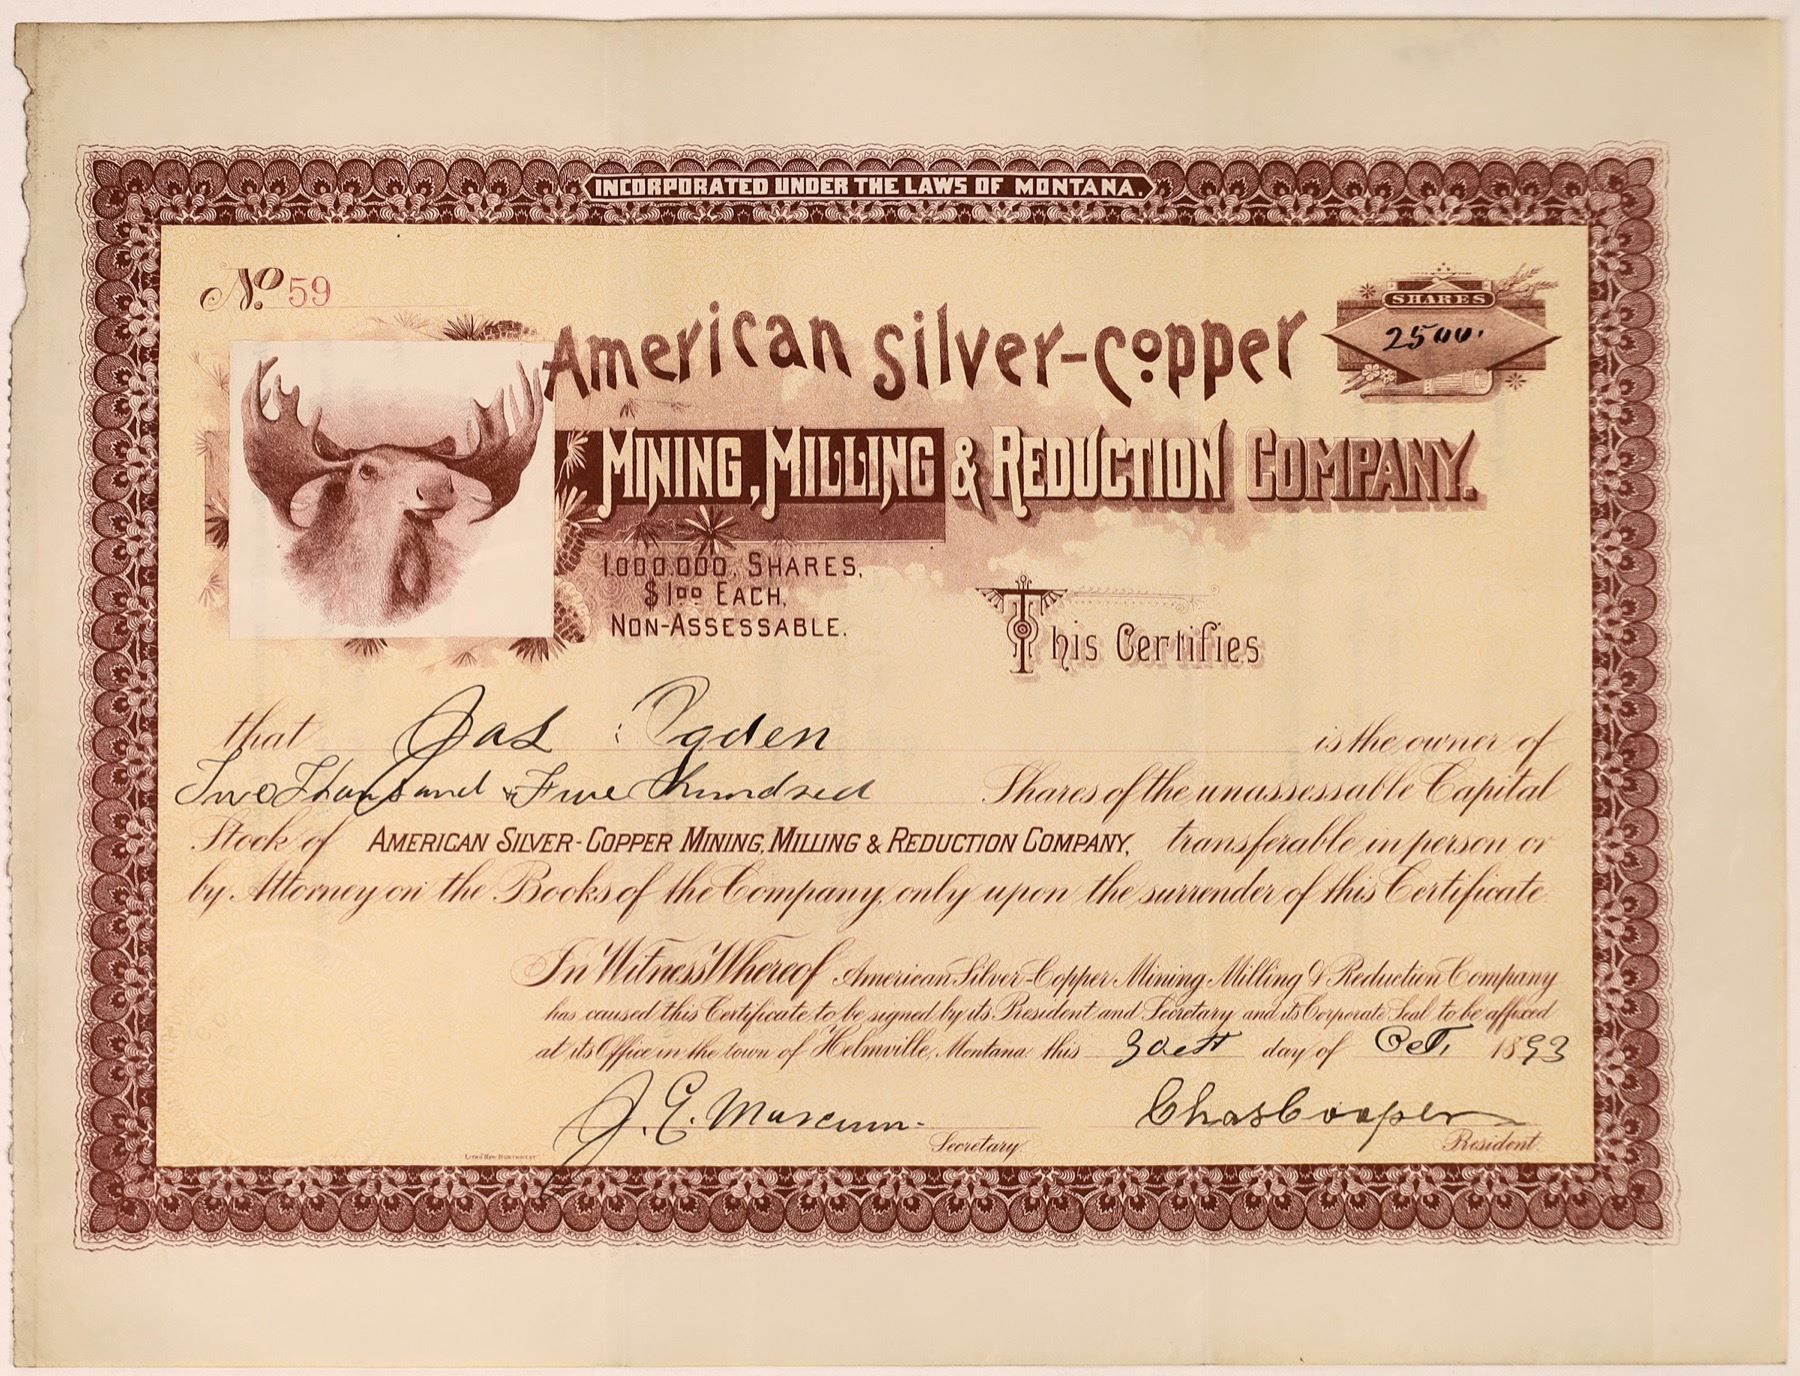 INCORPORATED UNDER THE LAWS OF MONTANA.
No. 59
SHARES
2500.
American Silver-Copper
MINING, MILLING & REDUCTION COMPANY.
1,000,000, SHARES,
$1.00 EACH,
NON-ASSESSABLE.
This Certifies
that Jas Ogden is the owner of
Two Thousand & Five Hundred Shares of the unassessable Capital
Stock of AMERICAN SILVER-COPPER MINING, MILLING & REDUCTION COMPANY, transferable in person or
by Attorney on the Books of the Company, only upon the surrender of this Certificate.
In Witness Whereof American Silver-Copper Mining Milling & Reduction Company
has caused this Certificate to be signed by its President and Secretary and its Corporate Seal to be affixed
at its Office in the town of Helmville, Montana this 30th day of Oct. 1893
J. E. Chas Cooper
Secretary. President.